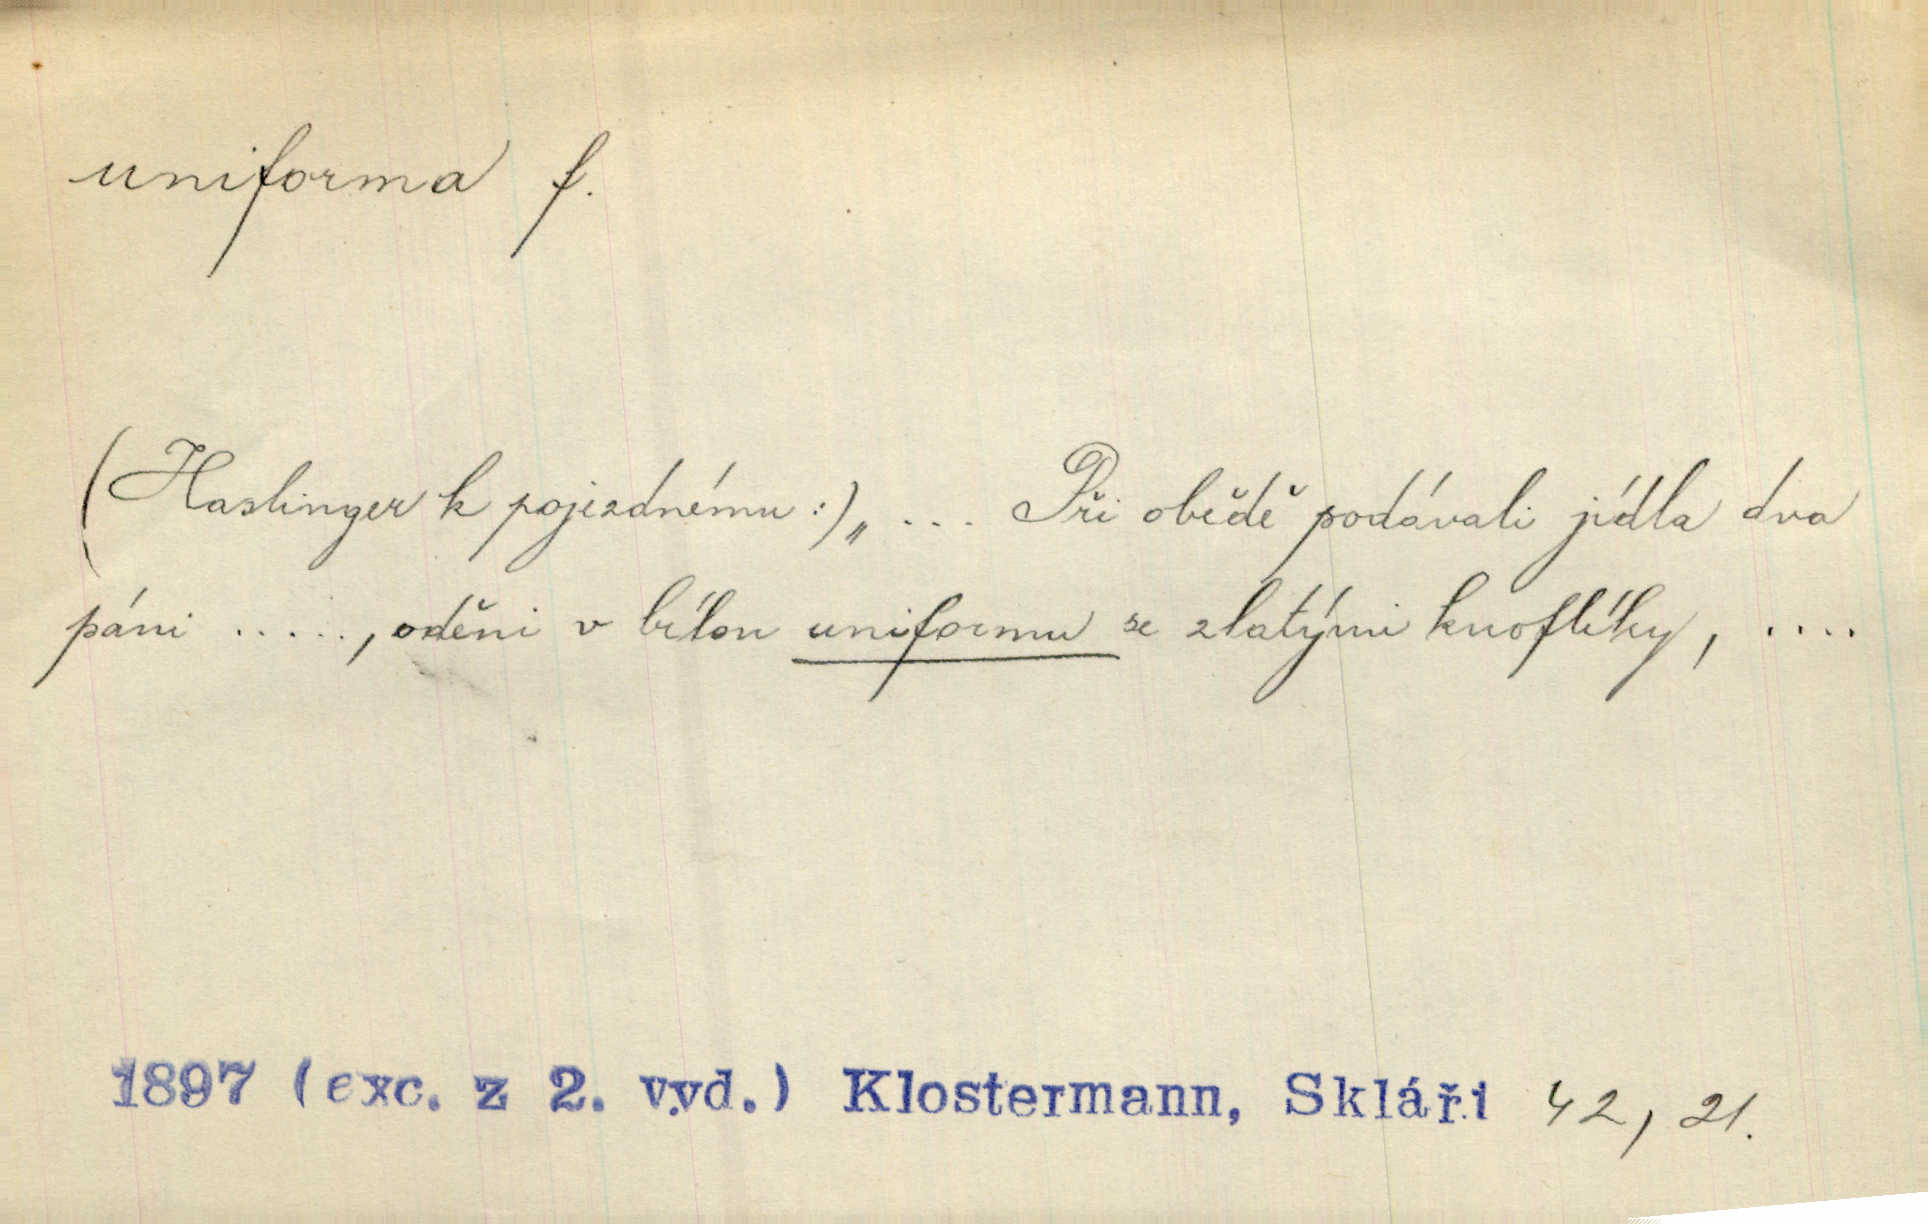 uniforma f.
(Haslinger k pojezdnému:) „ ... Při obědě podávali jídla dva
páni ....., oděni v bílou uniformu se zlatými knoflíky, ....
1897 (exc. z 2. vyd.) Klostermann, Skláři 42, 21.